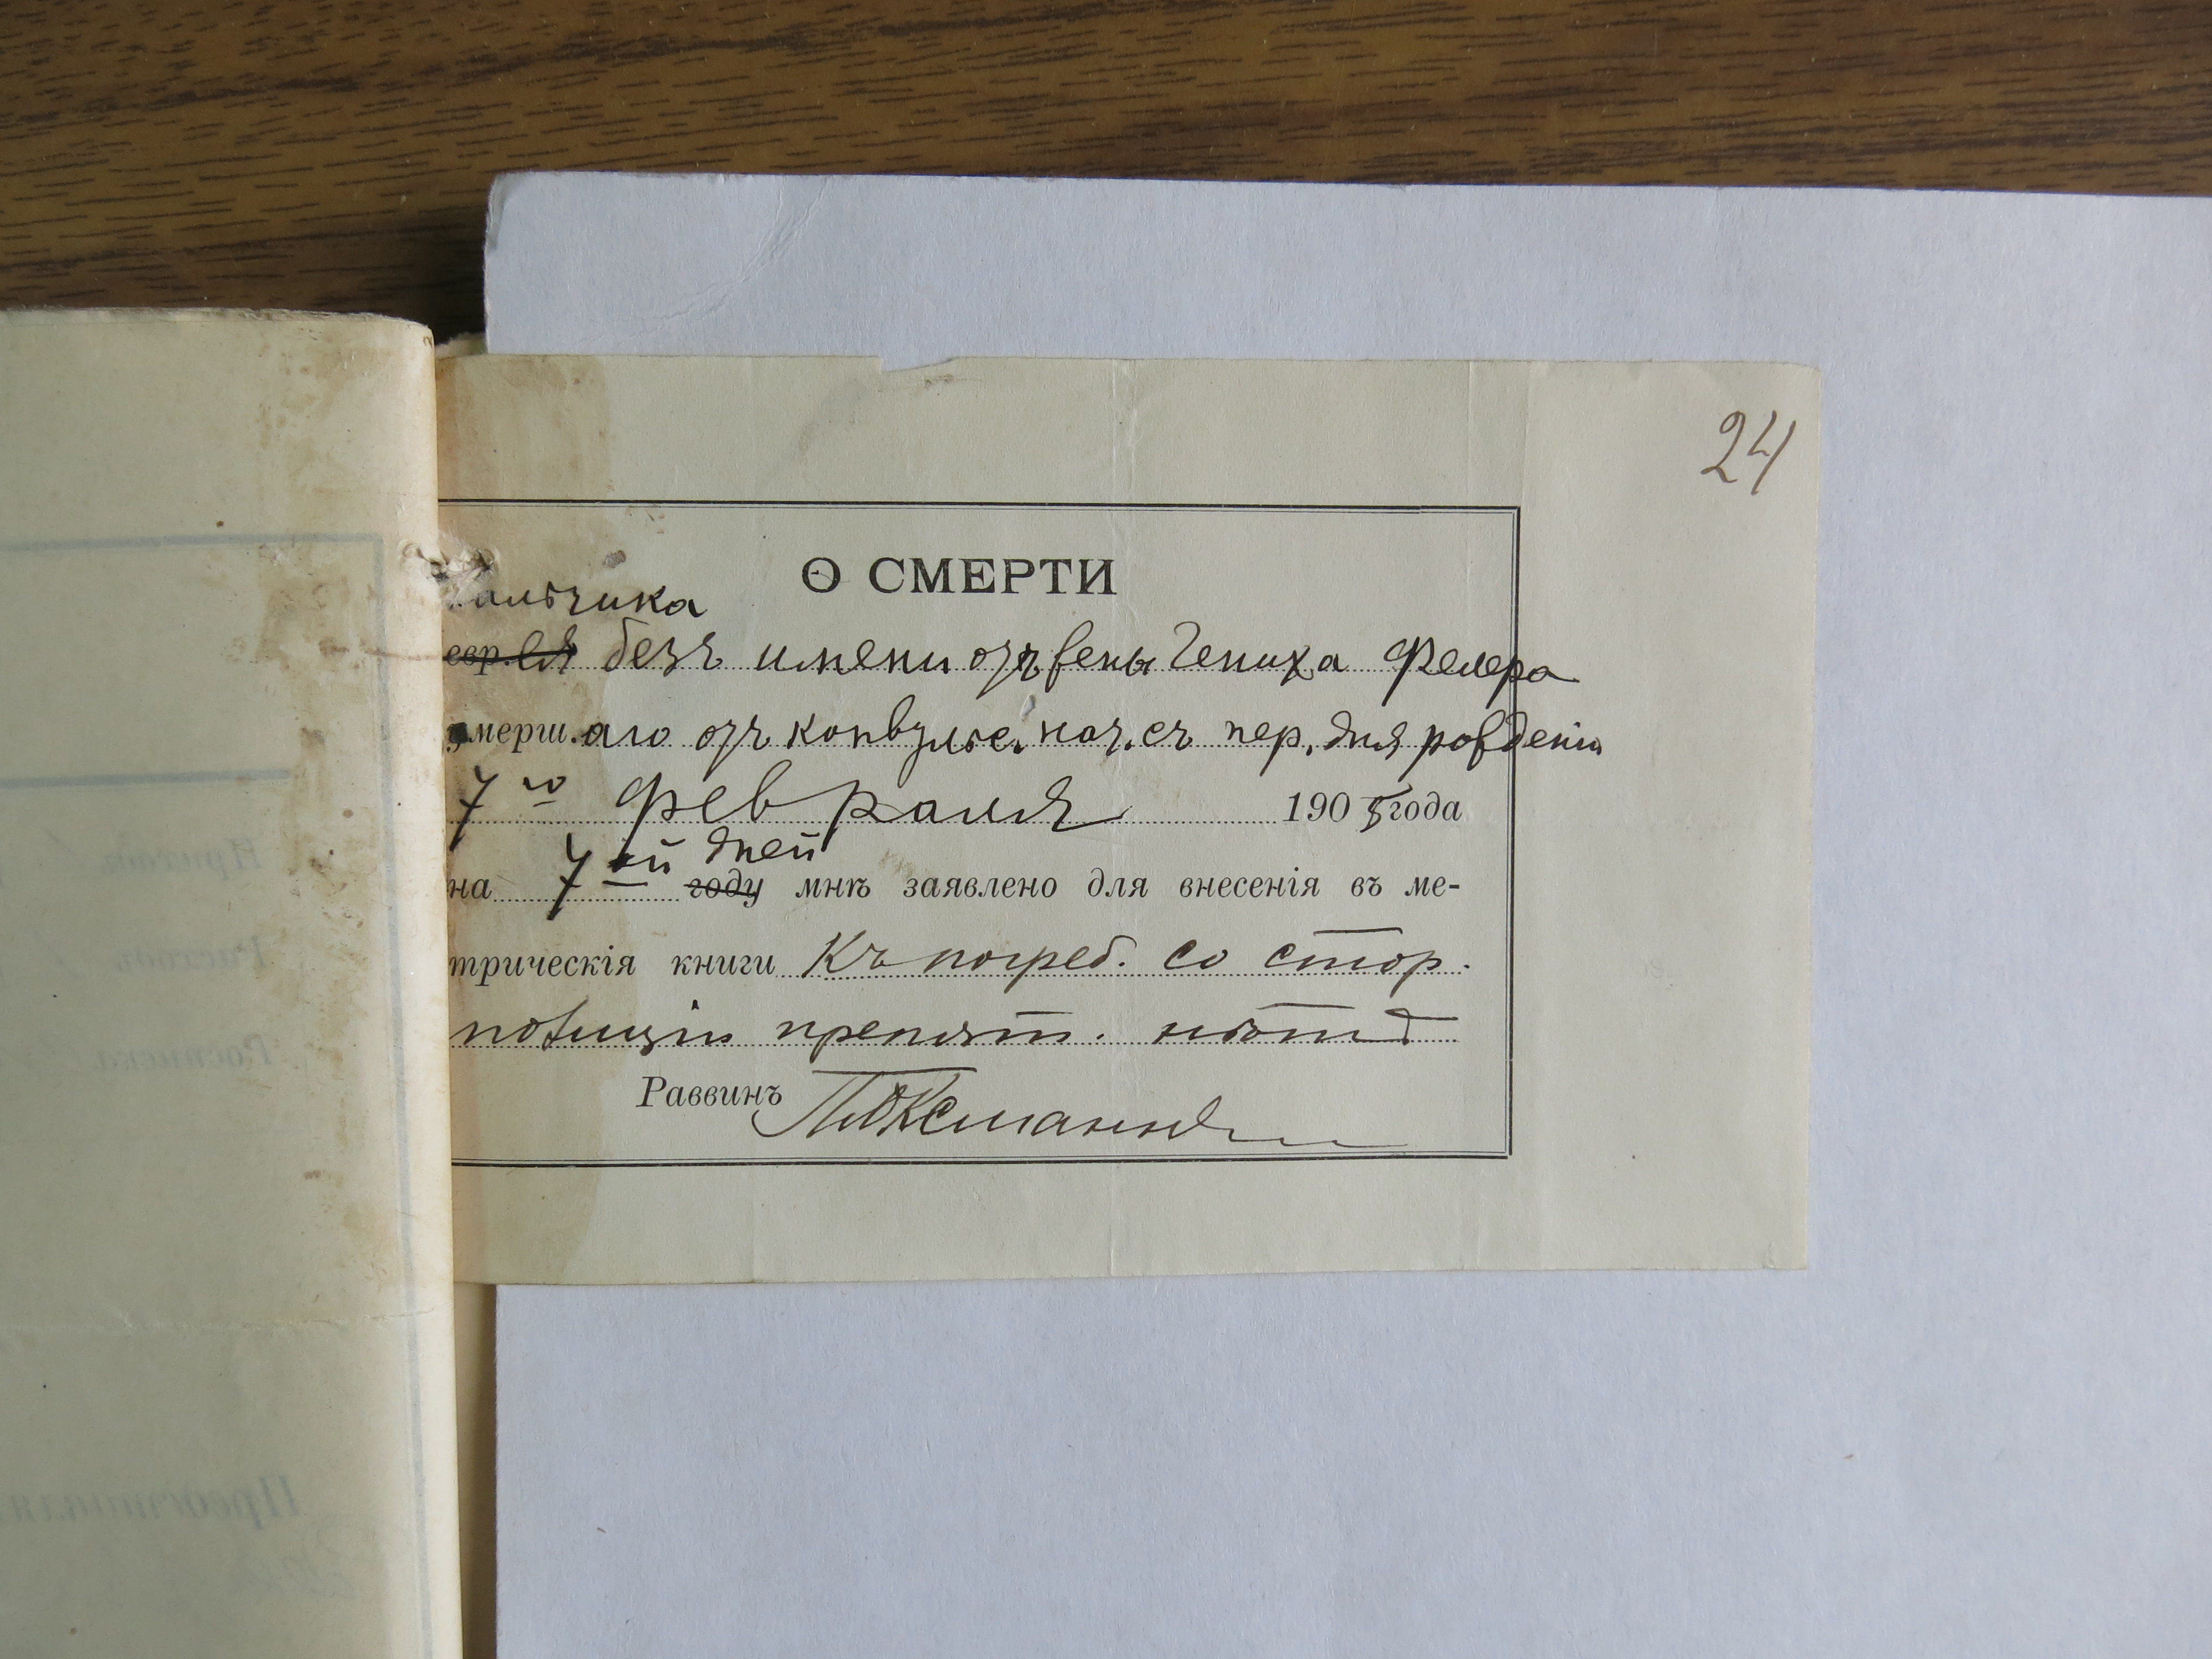 24
О СМЕРТИ
мальчика
евр.ея безъ имени отъ вены Гениха Фелера
умерш.аго отъ конвульс. нач. съ пер. дня рожденія
7го Февраля 1905 года
на 7ой дней году мнѣ заявлено для внесенія въ ме-
трическія книги Къ погреб. со стор.
полиціи препят. нѣтъ
Раввинъ